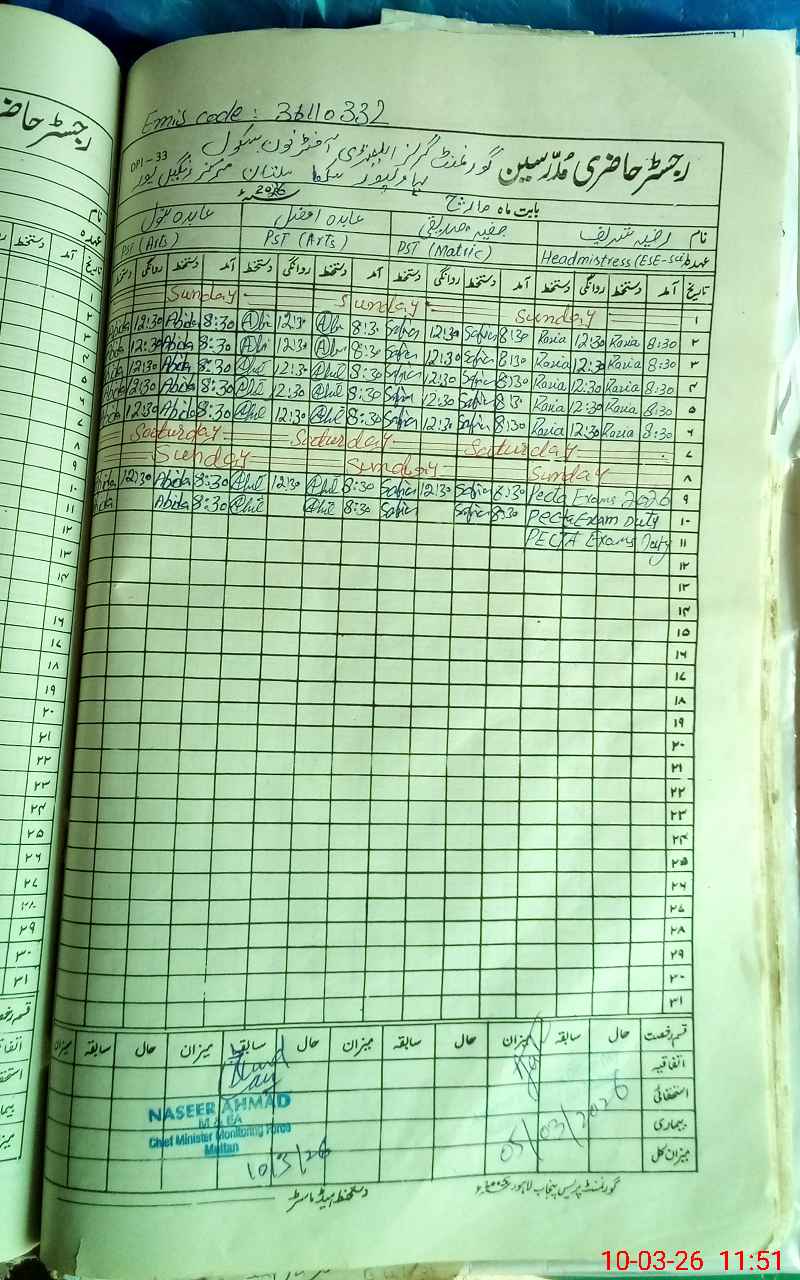 Emis code : 36110332
رجسٹر حاضری مدرسین گورنمنٹ گرلز ایلیمنٹری آفٹر نون سکول
DPI-33
بہاولپور سکھا ملتان مرکز رنگیل پور
بابت ماہ مارچ 2026ء
نام رضیہ شریف صفیہ صدیقی عابدہ افضل عابدہ بتول
عہدہ Headmistress (ESE-Sci) PST (Matric) PST (Arts) PST (Arts)
تاریخ آمد دستخط روانگی دستخط آمد دستخط روانگی دستخط آمد دستخط روانگی دستخط آمد دستخط روانگی دستخط
۱ Sunday Sunday Sunday
۲ 8:30 Razia 12:30 Razia 8:30 Safia 12:30 Safia 8:30 Abi 12:30 Abi 8:30 Abida 12:30 Abida
۳ 8:30 Razia 12:30 Razia 8:30 Safia 12:30 Safia 8:30 Abi 12:30 Abi 8:30 Abida 12:30 Abida
۴ 8:30 Razia 12:30 Razia 8:30 Safia 12:30 Safia 8:30 12:30 8:30 Abida 12:30 Abida
۵ 8:30 Razia 12:30 Razia 8:30 Safia 12:30 Safia 8:30 12:30 8:30 Abida 12:30 Abida
۶ 8:30 Razia 12:30 Razia 8:30 Safia 12:30 Safia 8:30 12:30 8:30 Abida 12:30 Abida
۷ Saturday Saturday Saturday
۸ Sunday Sunday Sunday
۹ Pecta Exams 2026 8:30 Safia 12:30 Safia 8:30 12:30 8:30 Abida 12:30 Abida
۱۰ Pecta Exam Duty 8:30 Safia Safia 8:30 8:30 Abida Abida
۱۱ PECTA Exams Duty
۱۲
۱۳
۱۴
۱۵
۱۶
۱۷
۱۸
۱۹
۲۰
۲۱
۲۲
۲۳
۲۴
۲۵
۲۶
۲۷
۲۸
۲۹
۳۰
۳۱
قسم رخصت حال سابقہ میزان حال سابقہ میزان حال سابقہ میزان حال سابقہ میزان
اتفاقیہ
استحقاقی
بیماری
میزان کل
05/03/2026
NASEER AHMAD
M & EA
Chief Minister Monitoring Force
Multan
10/3/26
دستخط ہیڈ ماسٹر
گورنمنٹ پریس پنجاب لاہور
10-03-26 11:51